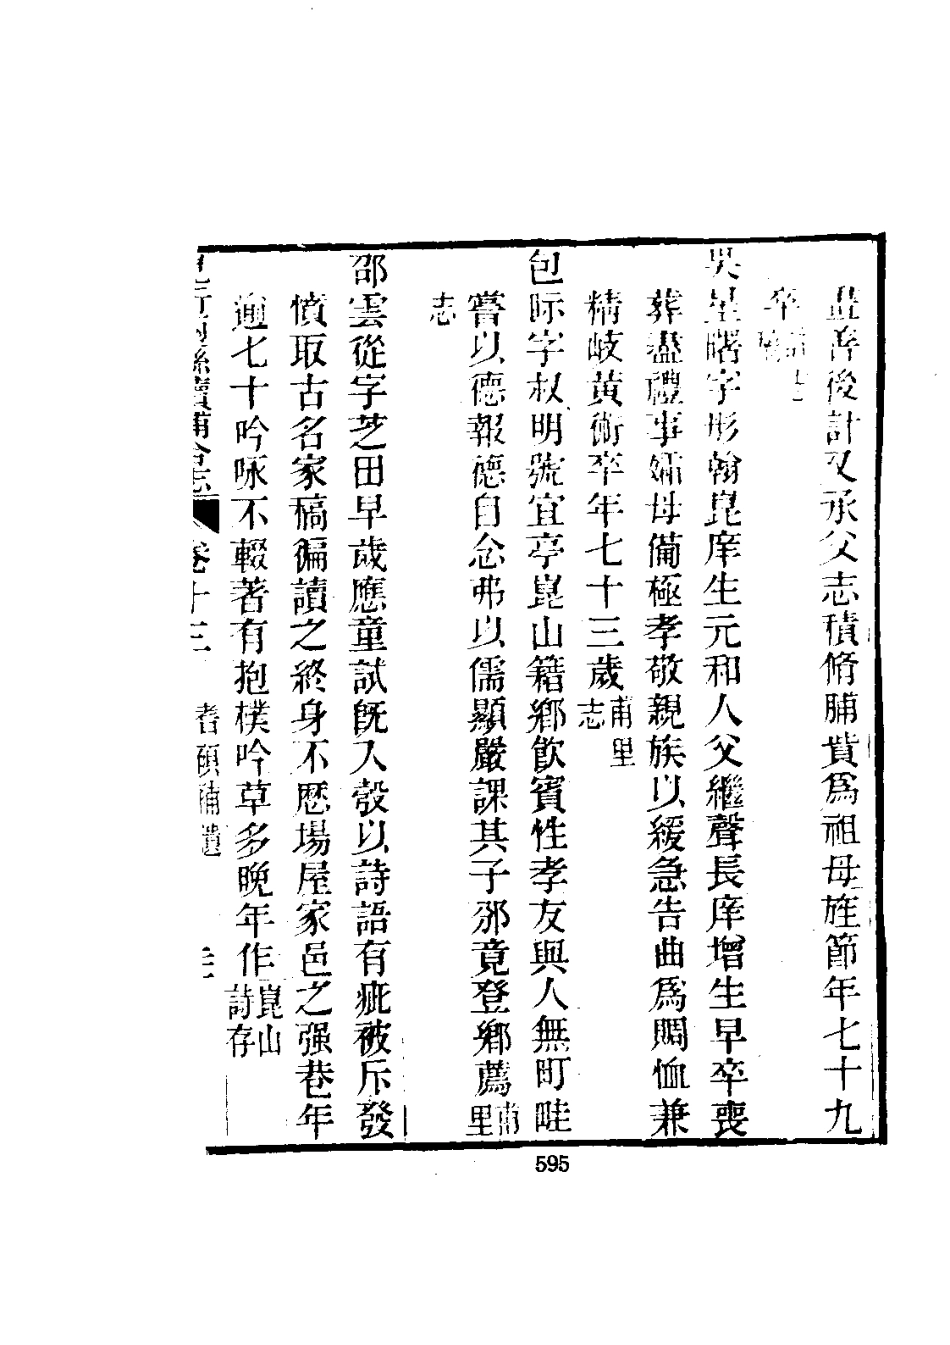 盡善後計又承父志積脩脯貲爲祖母旌節年七十九
卒
吳星曙字彤翰崑庠生元和人父繼聲長庠增生早卒喪
葬盡禮事孀母備極孝敬親族以緩急告曲爲賙恤兼
精岐黃術卒年七十三歲甫里志
包眎字叔明號宜亭崑山籍鄉飮賓性孝友與人無町畦
嘗以德報德自念弗以儒顯嚴課其子邠竟登鄉薦甫里
志
邵雲從字芝田早歲應童試旣入彀以詩語有疵被斥發
憤取古名家稿徧讀之終身不歷場屋家邑之强巷年
逾七十吟咏不輟著有抱樸吟草多晚年作崑山詩存
縣續補合志 卷十三 耆碩補遺
595